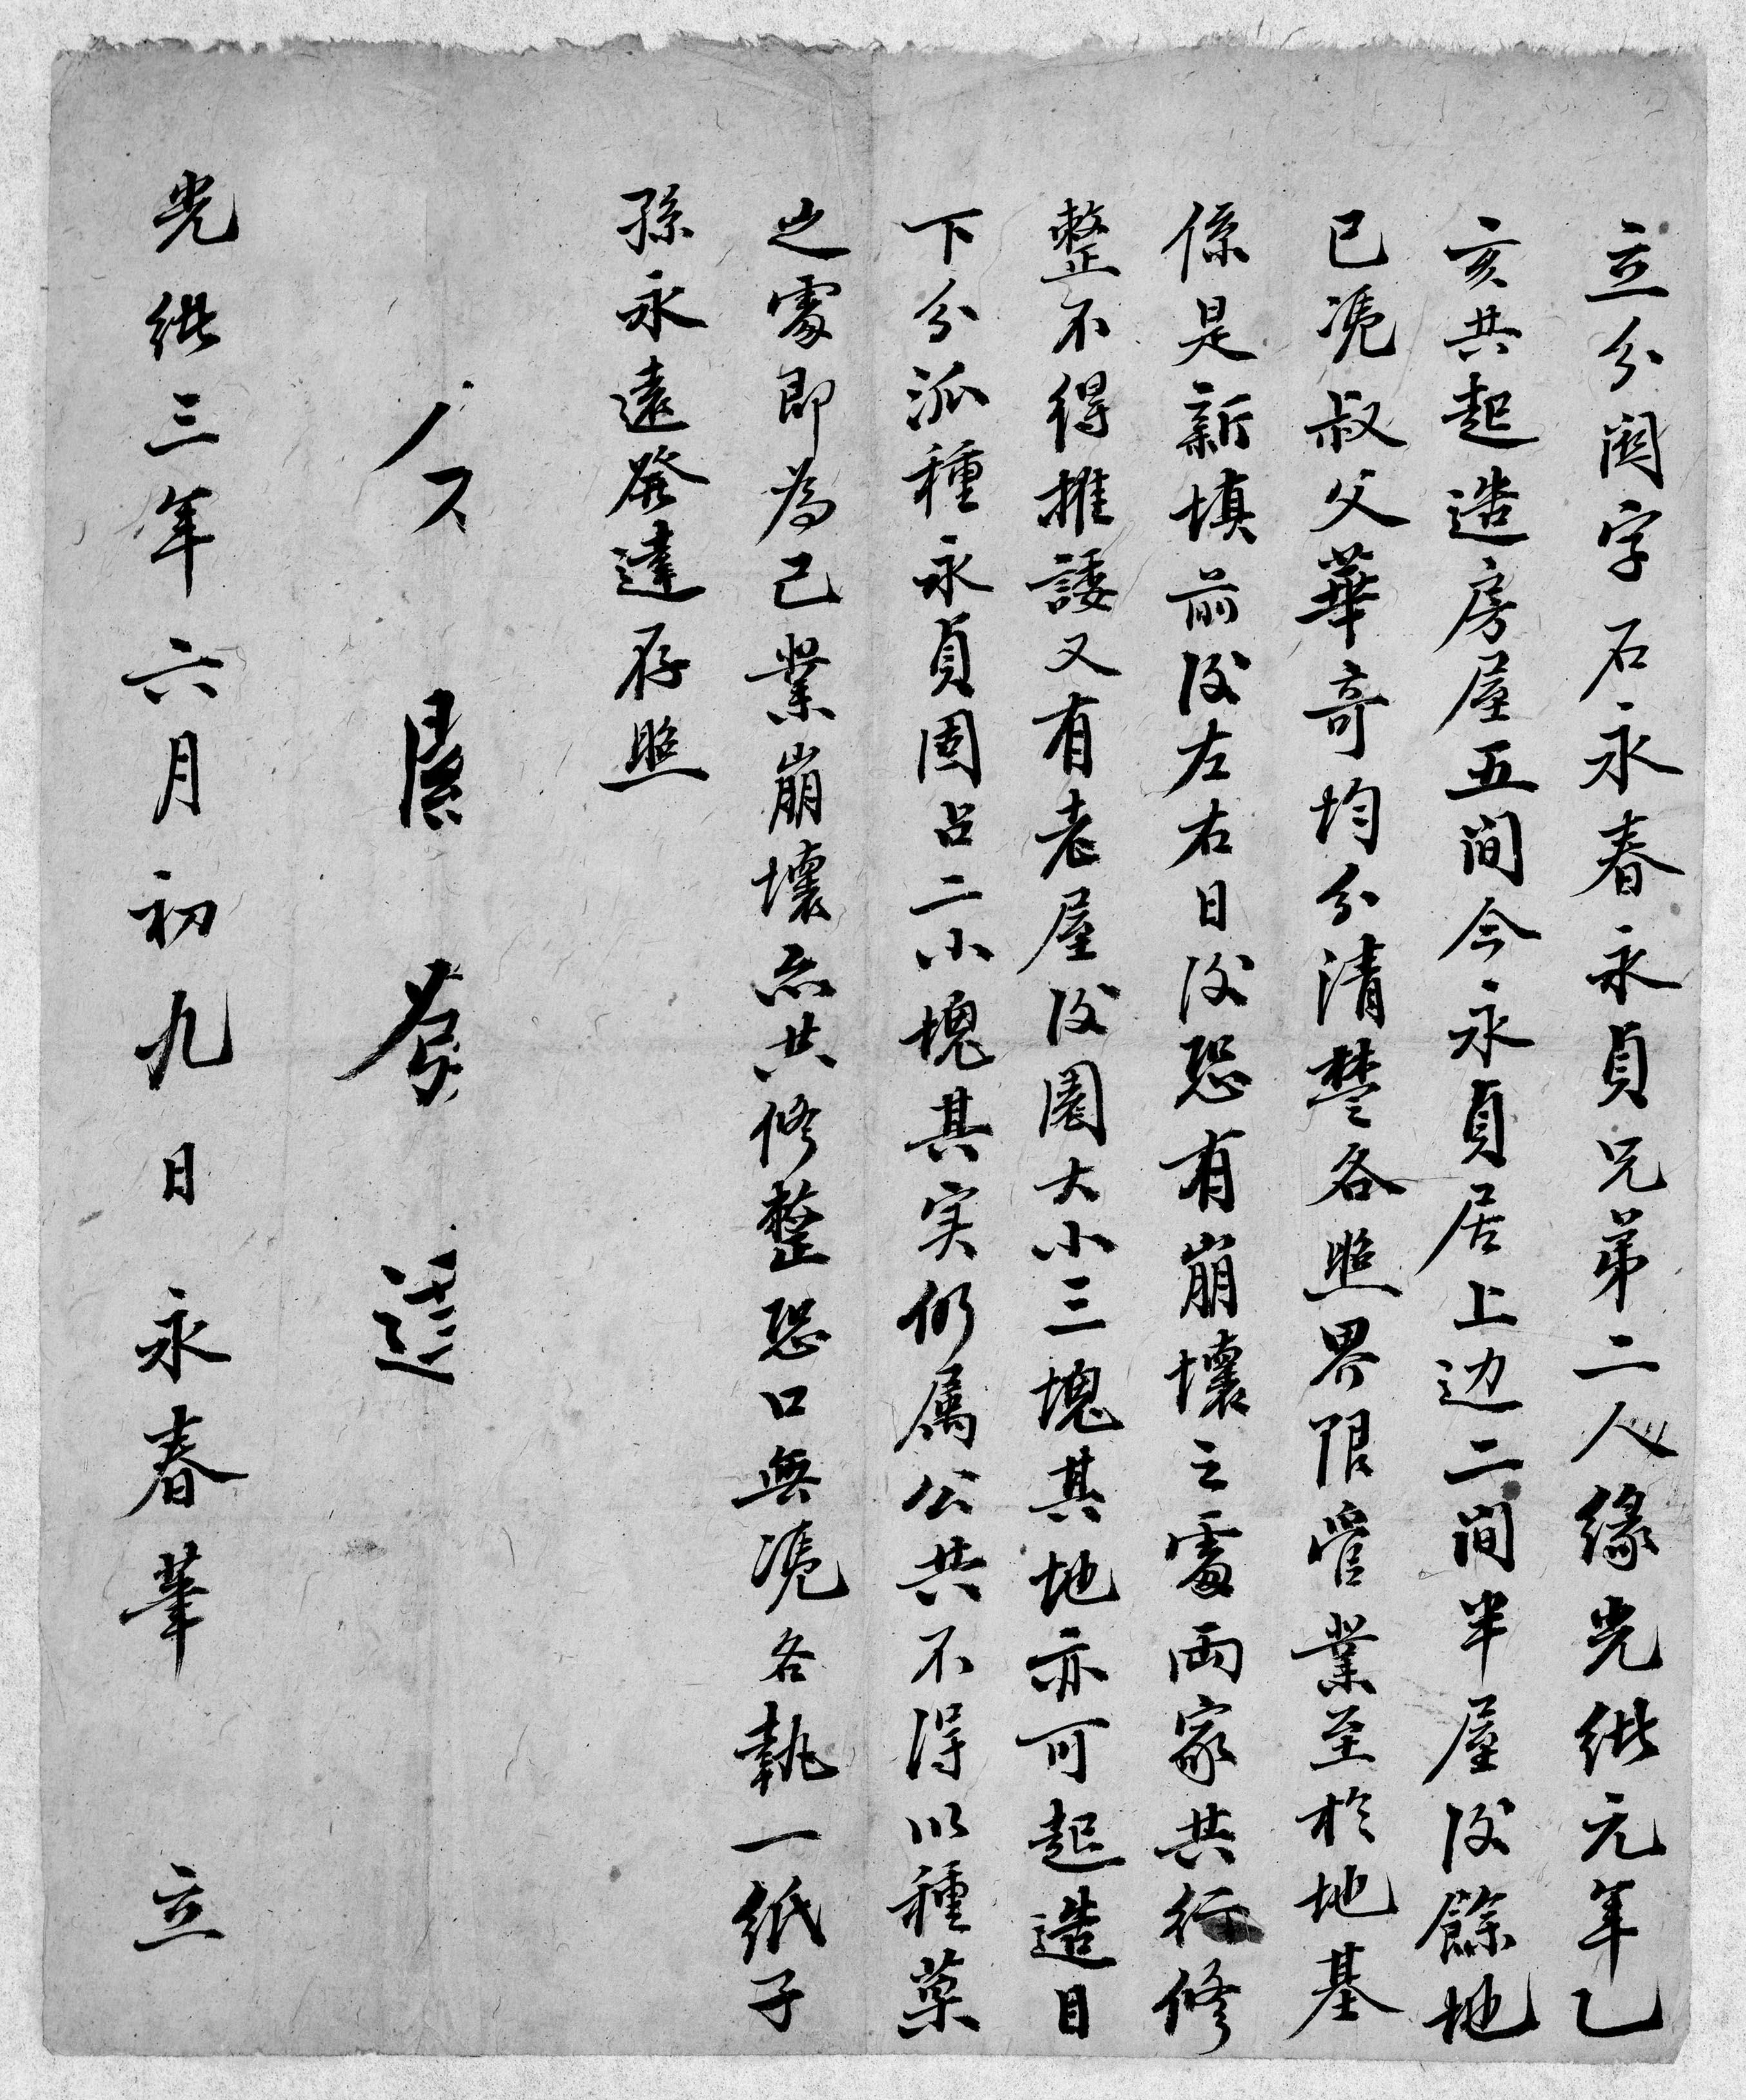 立分阄字石永春永貞兄弟二人缘光绪元年乙
亥共起造房屋五间今永貞居上边二间半屋後餘地
已凴叔父華奇均分清楚各照界限管業至於地基
係是新填前後左右日後恐有崩壞之處両家共行修
整不得推諉又有老屋後園大小三塊其地亦可起造目
下分派種永貞園占二小塊其实仍属公共不得以種菜
之處即為己業崩壞亦共修整恐口無凴各執一纸子
孫永遠發達存照
光绪三年六月初九日 永春筆 立